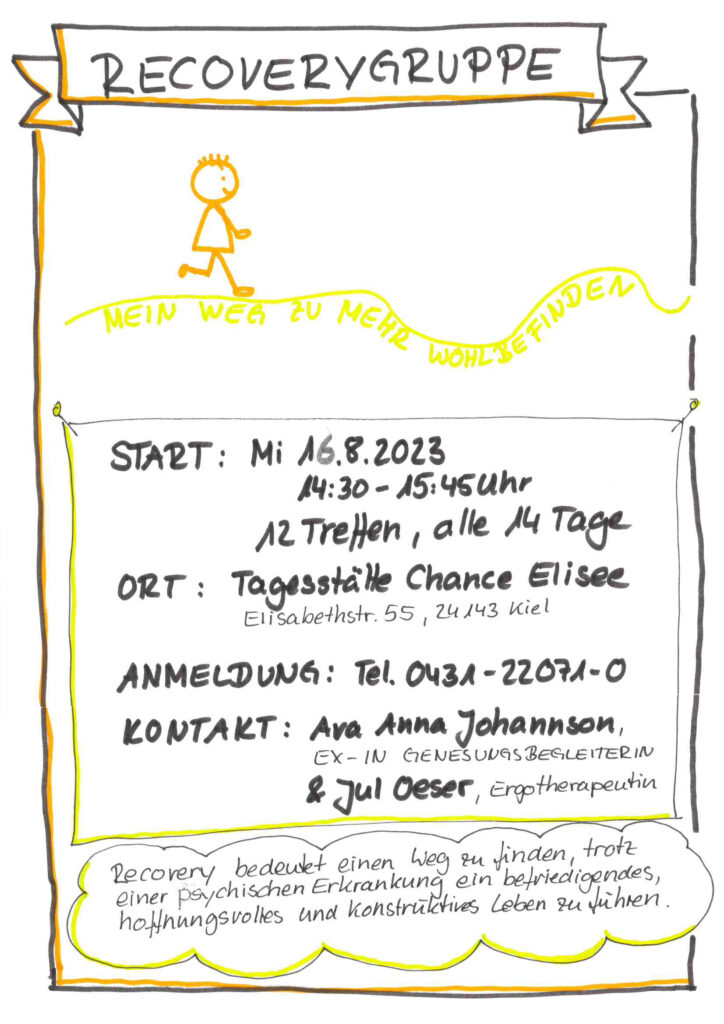 RECOVERYGRUPPE
MEIN WEG ZU MEHR WOHLBEFINDEN
START: Mi 16.8.2023
14:30 - 15:45 Uhr
12 Treffen, alle 14 Tage
ORT: Tagesstätte Chance Elisee
Elisabethstr. 55, 24143 Kiel
ANMELDUNG: Tel. 0431-22071-0
KONTAKT: Ava Anna Johannson,
EX-IN GENESUNGSBEGLEITERIN
& Jul Oeser, Ergotherapeutin
Recovery bedeutet einen Weg zu finden, trotz
einer psychischen Erkrankung ein befriedigendes,
hoffnungsvolles und konstruktives Leben zu führen.